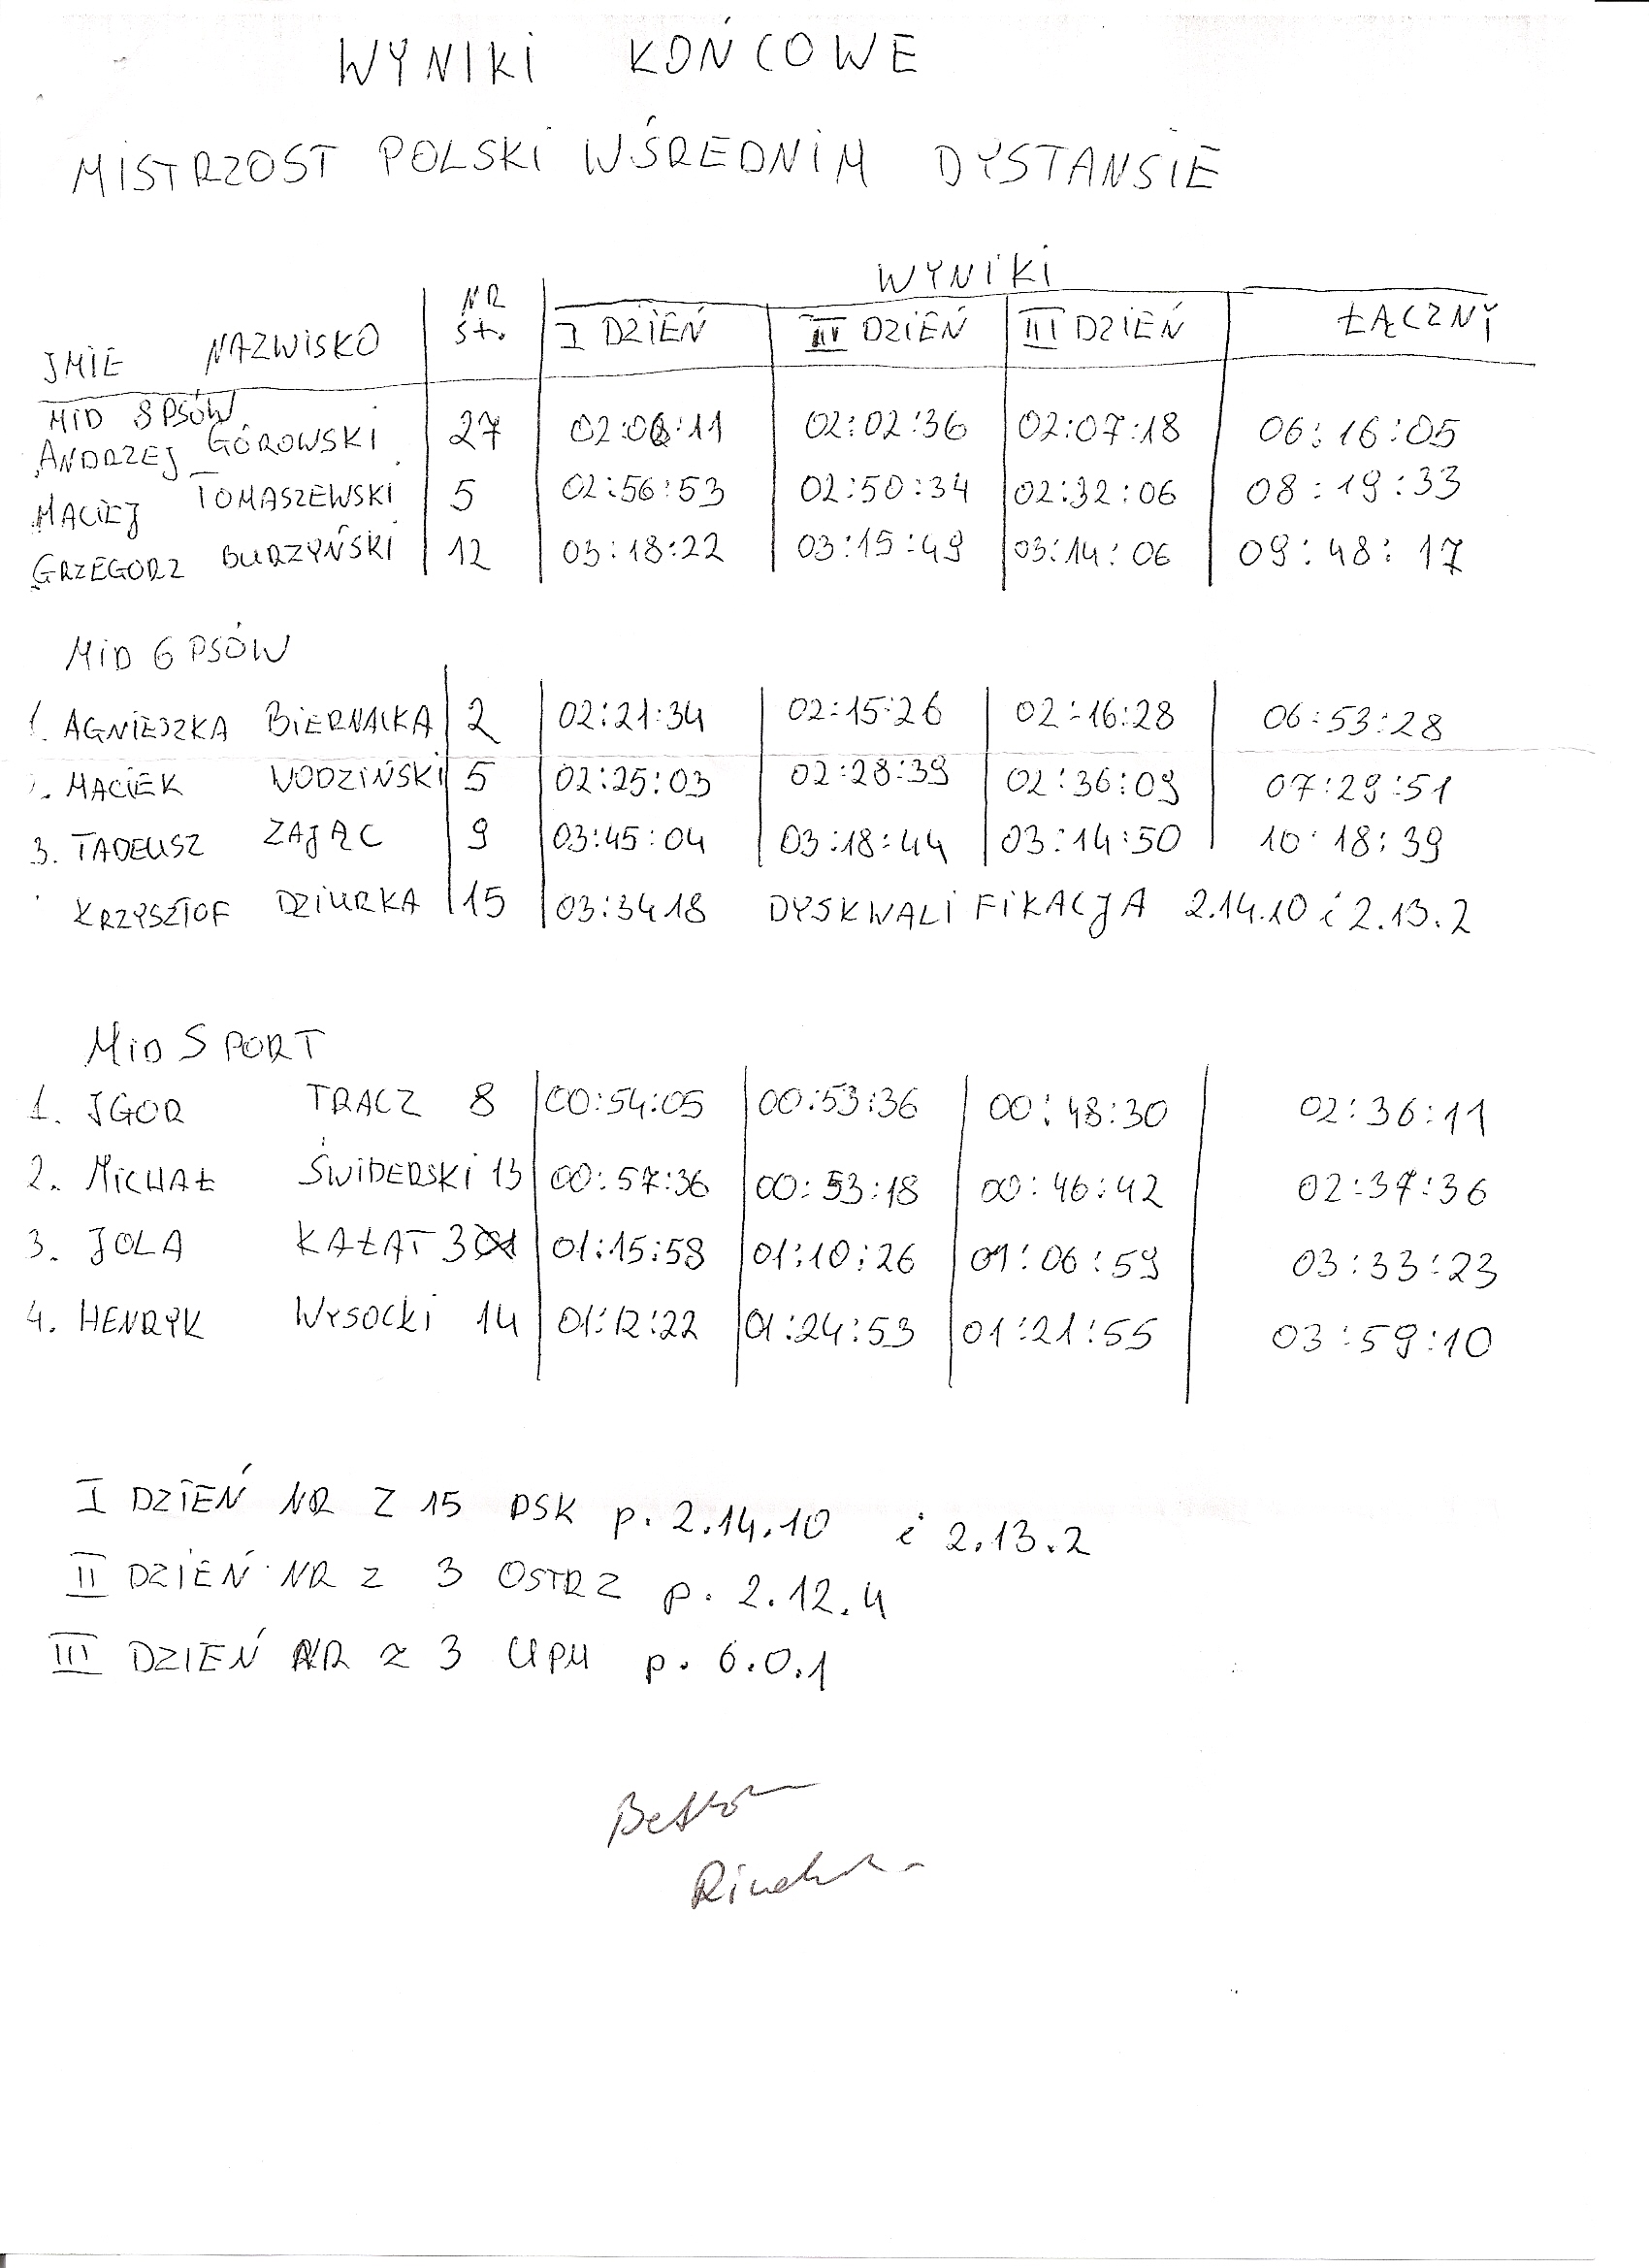 WYNIKI KOŃCOWE
MISTRZOST POLSKI W ŚREDNIM DYSTANSIE
WYNIKI
JMIE NAZWISKO NR St. I DZIEŃ II DZIEŃ III DZIEŃ ŁĄCZNY
MID 8 PSÓW
ANDRZEJ GÓROWSKI 27 02:06:11 02:02:36 02:07:18 06:16:05
MACIEJ TOMASZEWSKI 5 02:56:53 02:50:34 02:32:06 08:19:33
GRZEGORZ BURZYŃSKI 12 03:18:22 03:15:49 03:14:06 09:48:17
MID 6 PSÓW
1. AGNIESZKA BIERNACKA 2 02:21:34 02:15:26 02:16:28 06:53:28
2. MACIEK WODZIŃSKI 5 02:25:03 02:28:39 02:36:09 07:29:51
3. TADEUSZ ZAJĄC 9 03:45:04 03:18:44 03:14:50 10:18:39
KRZYSZTOF DZIURKA 15 03:34 18 DYSKWALIFIKACJA 2.14.10 i 2.13.2
MID SPORT
1. JGOR TRACZ 8 00:54:05 00:53:36 00:48:30 02:36:11
2. MICHAŁ ŚWIDERSKI 13 00:57:36 00:53:18 00:46:42 02:37:36
3. JOLA KAŁAT 3 01:15:58 01:10:26 01:06:59 03:33:23
4. HENRYK WYSOCKI 14 01:12:22 01:24:53 01:21:55 03:59:10
I DZIEŃ NR Z 15 DSK p. 2.14.10 i 2.13.2
II DZIEŃ NR Z 3 OSTRZ p. 2.12.4
III DZIEŃ NR Z 3 UPM p. 6.0.1